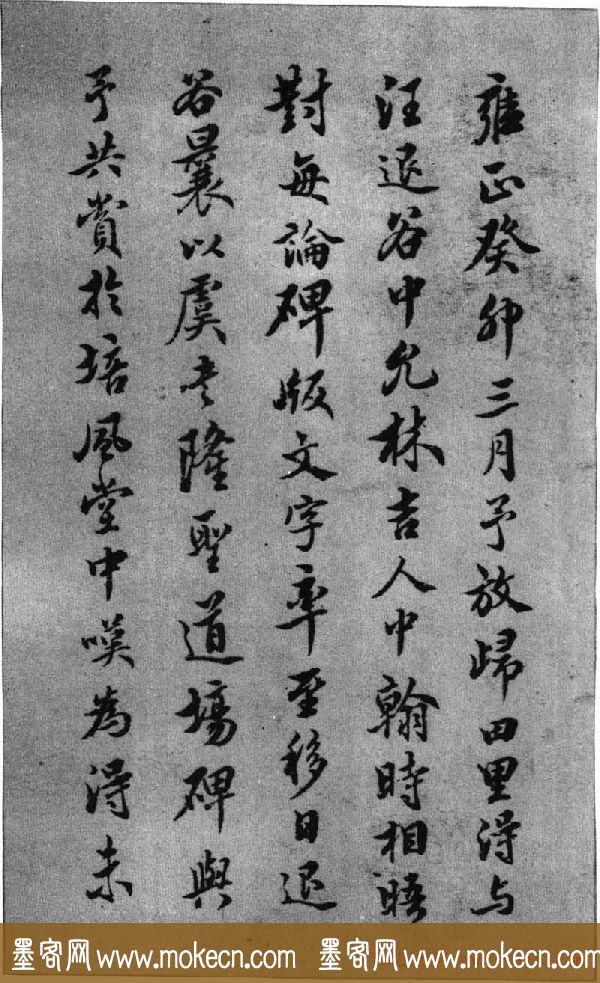 雍正癸卯三月予放歸田里得与
汪退谷中允林吉人中翰時相晤
對每論碑版文字率至移日退
谷曩以虞書隆聖道場碑與
予共賞於培風堂中嘆為得未
墨客网 www.mokecn.com 墨客网 www.mokecn.com